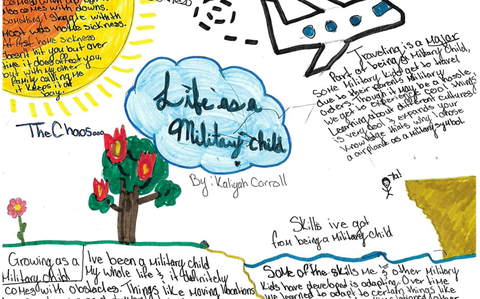 also comes with downs.
Something I struggle with
most was homesickness.
At first homesickness
doesn't hit you but over
time it does affect you,
but with my other
family calling me
it keeps it at
bay.
Traveling is a Major
Part of being a Military Child,
Some Military kids got to travel
due to their parents Military
orders. Though it may be a hassle,
we get to experience cool things.
Learning about different cultures
is very cool & expands your
knowledge thats why I chose
a airplane as a military symbol
Life as a
Military Child
The Chaos....
By: Kaliyah Carroll
Skills ive got
from being a Military child
Growing as a
Military child
I've been a military child
My whole life & it definitely
comes with obstacles. Things like Moving locations
Some of the skills Me & other Military
Kids have developed is adapting. Over time
we learned to adapt to certain things like